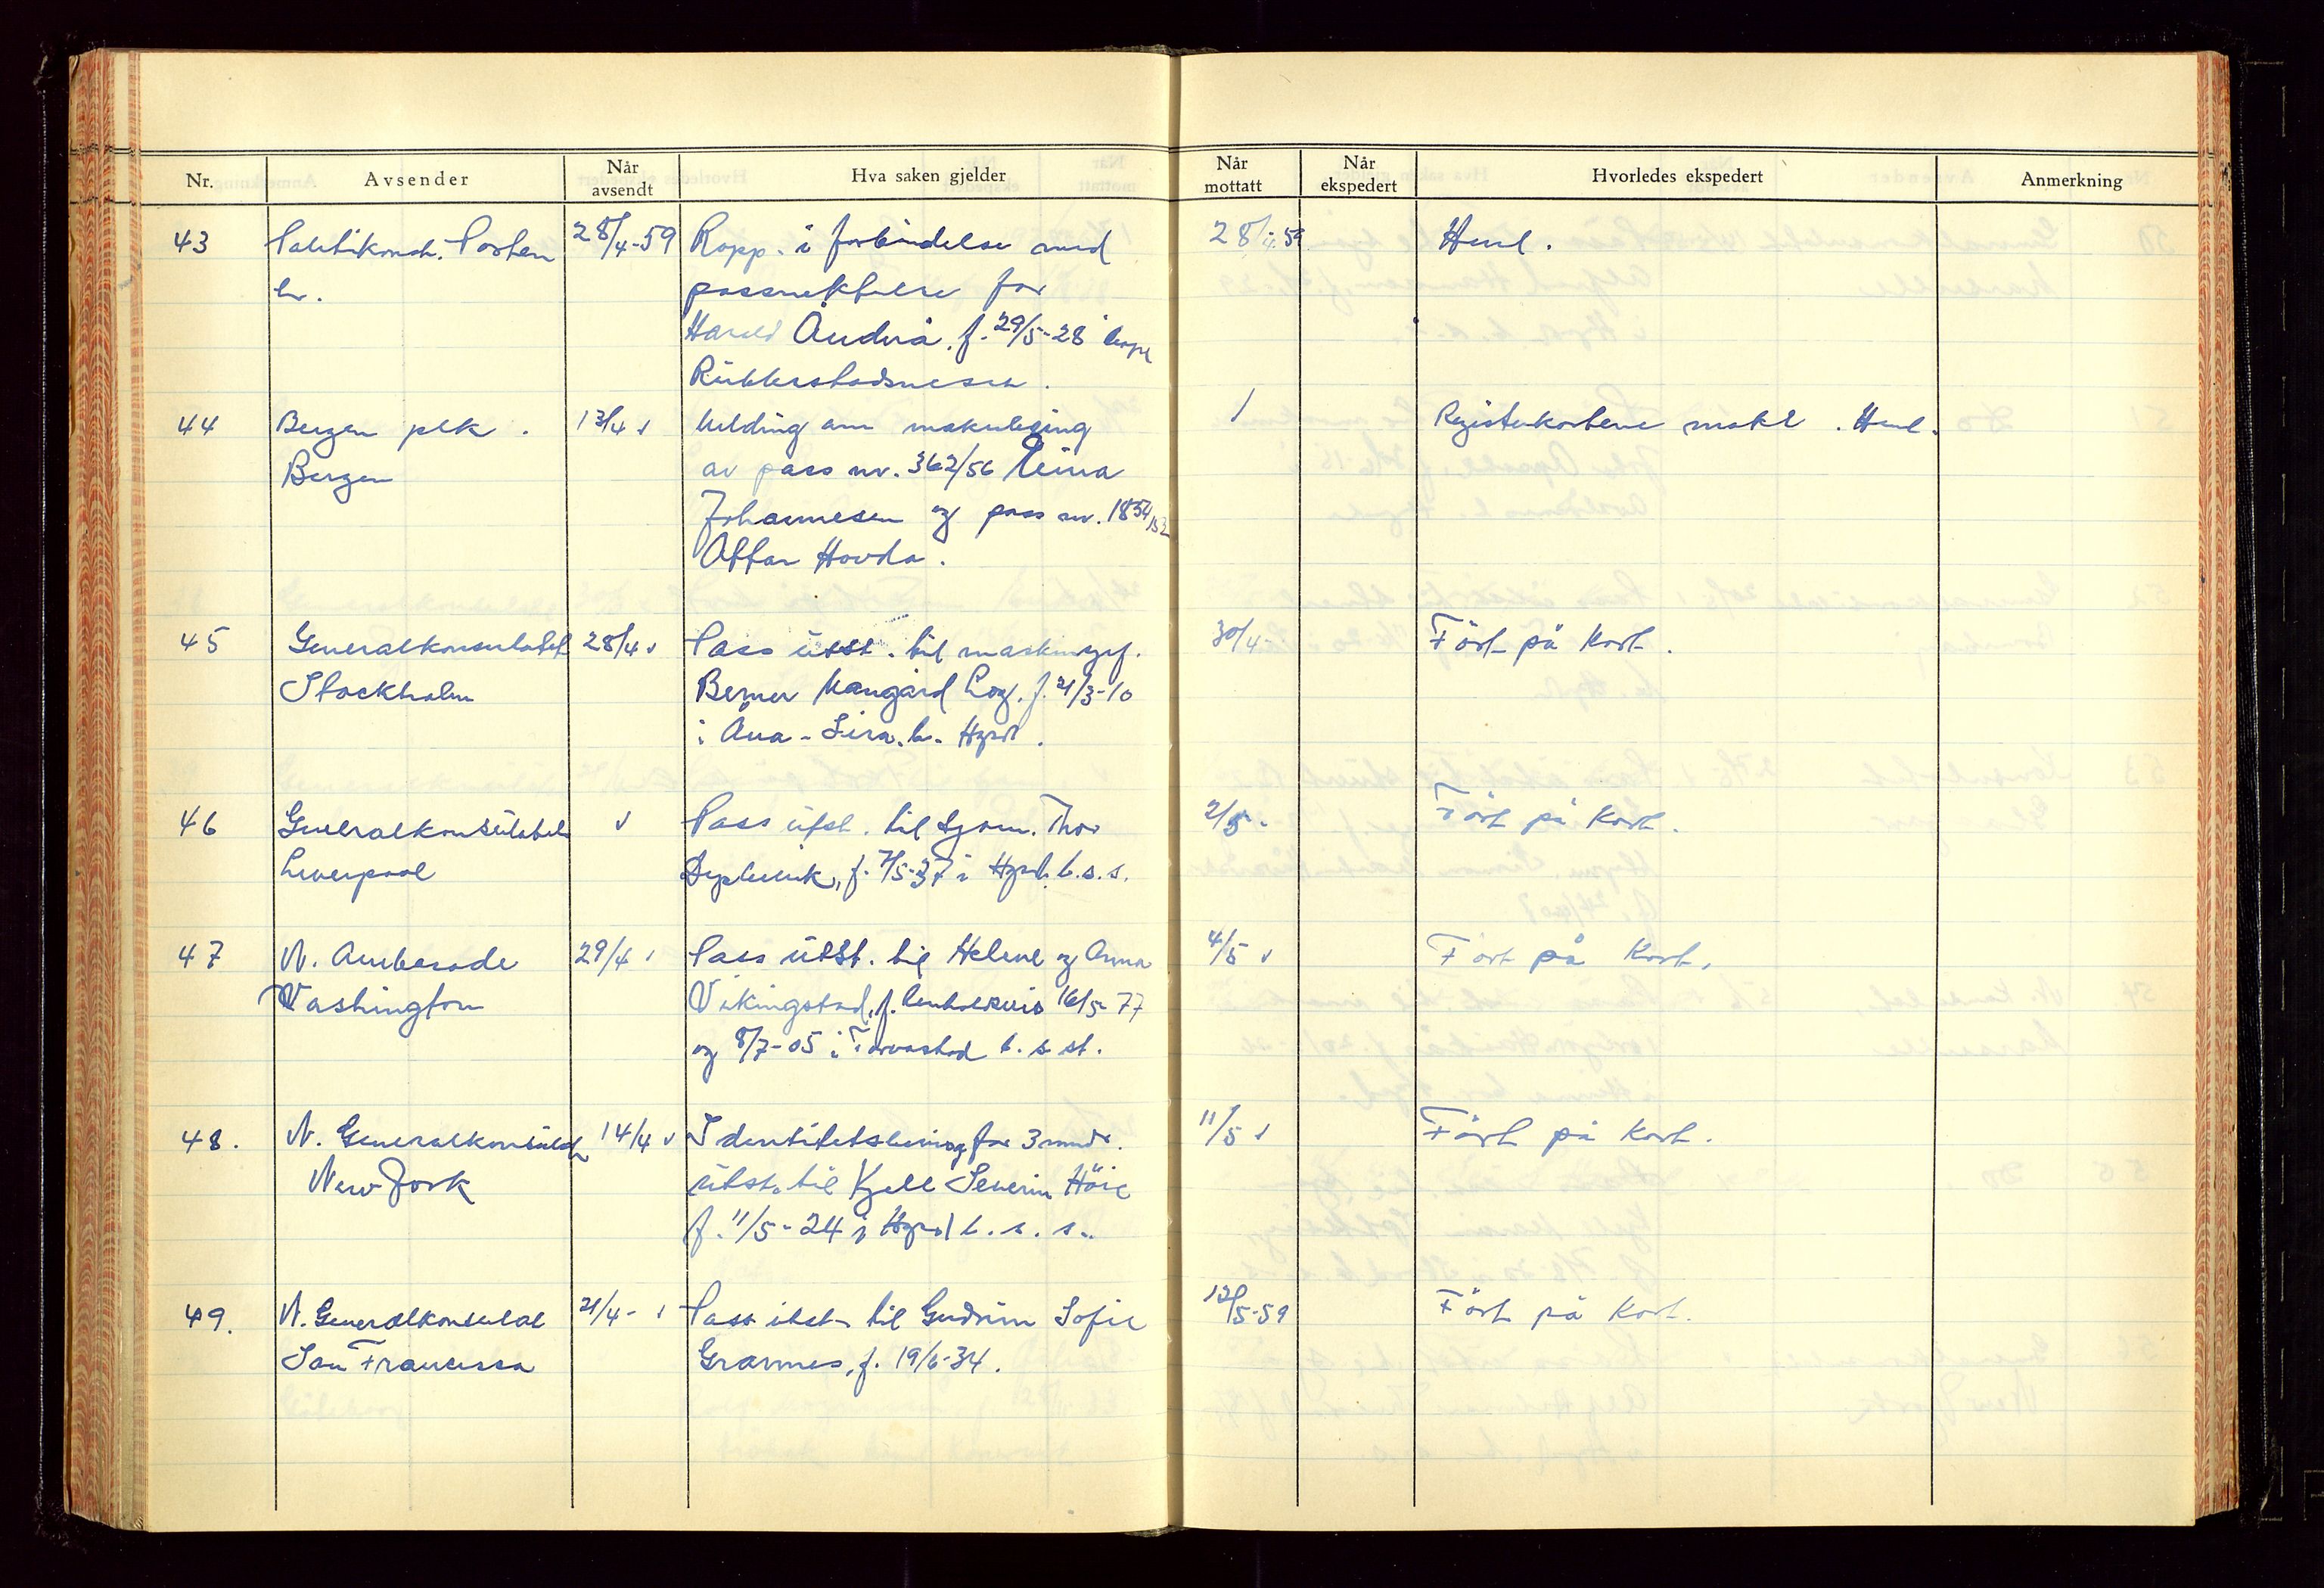 Nr. Avsender Når avsendt Hva saken gjelder Når mottatt Når ekspedert Hvorledes ekspedert Anmerkning
43 28/4-59 Rapp. i forbindelse med 28/4-59 Henl.
her. passnektelse for
Harald f. 29/5-28
44 Bergen plk. 13/4 Melding om makulering Registerkortene makl. Henl.
Bergen av pass nr. 362/56 Reina
Johannesen og pass nr. 1854/52
Ottar Hovda.
45 Generalkonsulatet 28/4 Pass utst. til 30/4- Ført på kort.
Stockholm Berner f. 21/3-10
i Ana-Sira b. Hgsd.
46 Generalkonsulatet Pass utst. til sjøm. Thor 2/5- Ført på kort.
Liverpool f. 7/5-37 i Hgsd. b.s.s.
47 N. Ambassade 29/4 Pass utst. til Helene og Anna 4/5 Ført på kort.
Washington Vikingstad, f. henholdsvis 16/5-77
og 8/7-05 i Torvastad b. s. st.
48. N. Generalkonsulat 14/4 Identitetsbevis for 3 mndr. 11/5 Ført på kort.
New York utst. til Kjell Severin Höie
f. 11/5-24 i Hgsd b. s. s.
49. N. Generalkonsulat 21/4- Pass utst. til Gudrun Sofie 12/5-59 Ført på kort.
San Francisco f. 19/6-34.